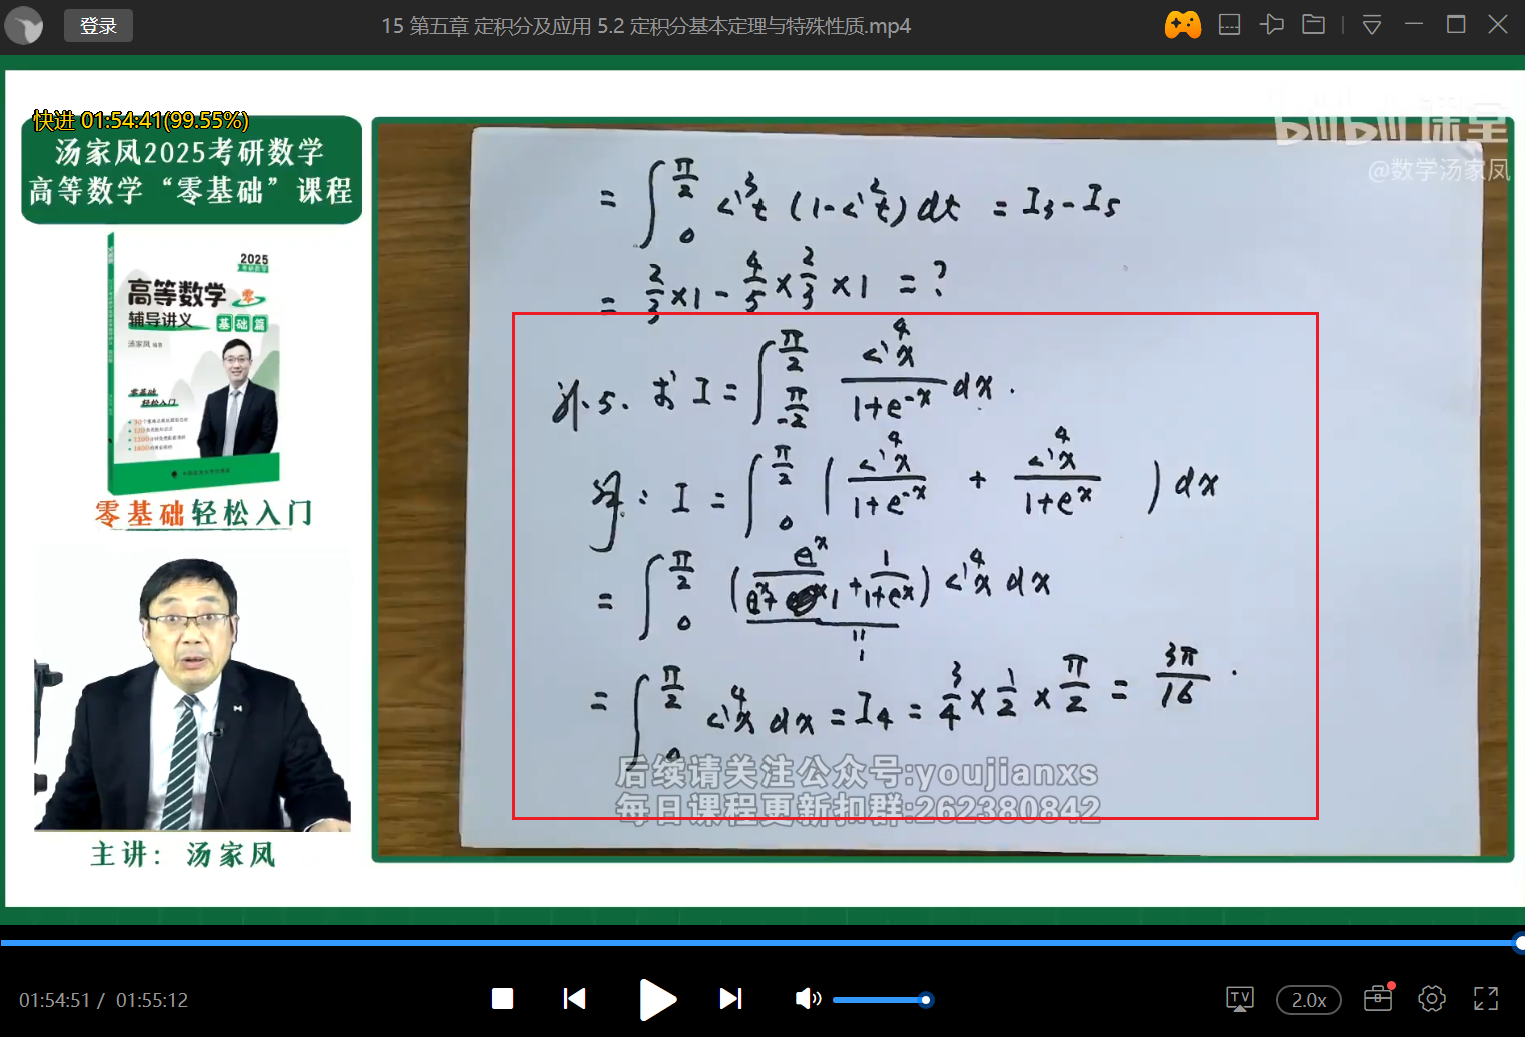 登录
15 第五章 定积分及应用 5.2 定积分基本定理与特殊性质.mp4
快进 01:54:41(99.55%)
汤家凤2025考研数学
高等数学“零基础”课程
2025
高等数学 零
辅导讲义 基础篇
汤家凤 编著
零基础
轻松入门
零基础轻松入门
主讲：汤家凤
bilibili 课堂
@数学汤家凤
= ∫_0^{π/2} sin^3 t (1-sin^2 t) dt = I_3 - I_5
= 2/3 × 1 - 4/5 × 2/3 × 1 = ?
例5. 求 I = ∫_{-π/2}^{π/2} sin^4 x / (1+e^{-x}) dx.
解: I = ∫_0^{π/2} ( sin^4 x / (1+e^{-x}) + sin^4 x / (1+e^x) ) dx
= ∫_0^{π/2} ( e^x / (e^x+1) + 1 / (1+e^x) ) sin^4 x dx
= 1
= ∫_0^{π/2} sin^4 x dx = I_4 = 3/4 × 1/2 × π/2 = 3π/16.
后续请关注公众号:youjianxs
每日课程更新扣群:262380842
01:54:51 / 01:55:12
TV
2.0x